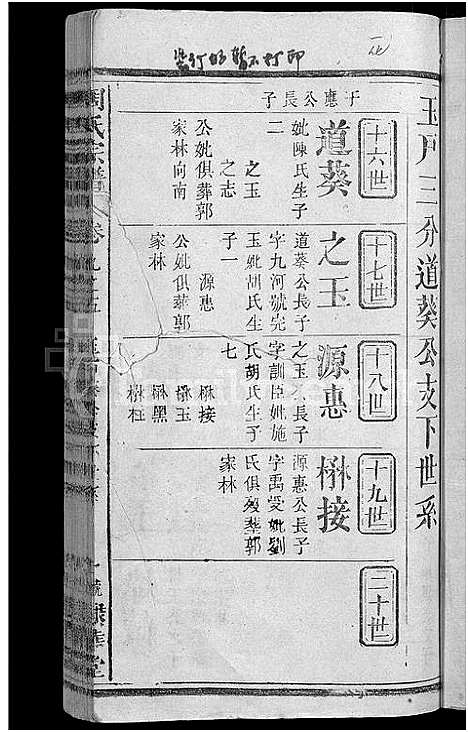 玉戶三分道葵公支下世系
十六世
于應公長子
道葵
妣陳氏生子
二
之玉
之志
公妣俱葬郭
家林向南
十七世
之玉
道葵公長子
字九河號完
玉妣胡氏生
子一
源惠
公妣俱葬郭
家林
十八世
源惠
之玉公長子
字訓臣妣施
氏胡氏生子
七
楙接
楙玉
楙黑
楙柱
十九世
楙接
源惠公長子
字禹受妣劉
氏俱歿葬郭
家林
二十世
周氏宗譜
卷九之五